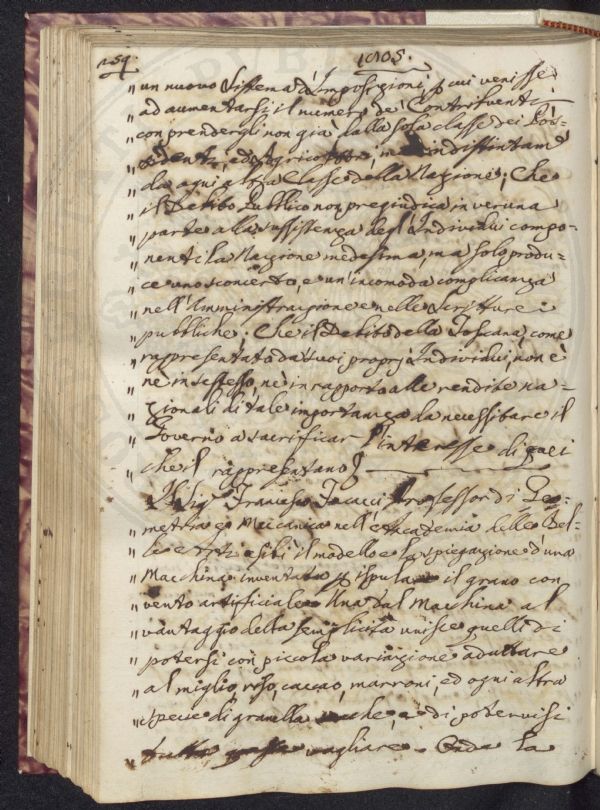 259. 1805.
„ un nuovo Sistema d'Imposizioni, p cui venisse
„ ad aumentarsi il numero dei Contribuenti
„ con prendergli non già dalla sola classe dei Pos-
„ sidenti, ed Agricoltori, ma indistintam
„ da ogni altra Classe della Nazione; Che
„ il Debito Pubblico non pregiudica in veruna
„ parte alla sussistenza degl'Individui compo-
„ nenti la Nazione medesima, ma solo produ-
„ ce uno sconcerto, e un'incomoda complicanza
„ nell'Amministrazione e nelle Scritture
„ pubbliche: Che il Debito della Toscana, come
„ rappresentato da suoi proprj Individui, non è
„ ne in se stesso, ne in rapporto alle rendite na-
„ zionali di tale importanza da necessitare il
„ Governo a sacrificar l'interesse di quei
„ che il rappresentano
„ Il Sig. Francesco Focacci Professor di Geo-
„ metria e Meccanica nell'Accademia delle Bel-
„ le Arti esibì il modello e la spiegazione d'una
„ Macchina inventata p ispular il grano con
„ vento artificiale. Una tal Macchina al
„ vantaggio della semplicità unisce quelli di
„ potersi con piccola variazione adattare
„ al miglio, riso, caccao, marroni, ed ogni altra
„ specie di granella che, di potervisi
„ vagliare. Onde la